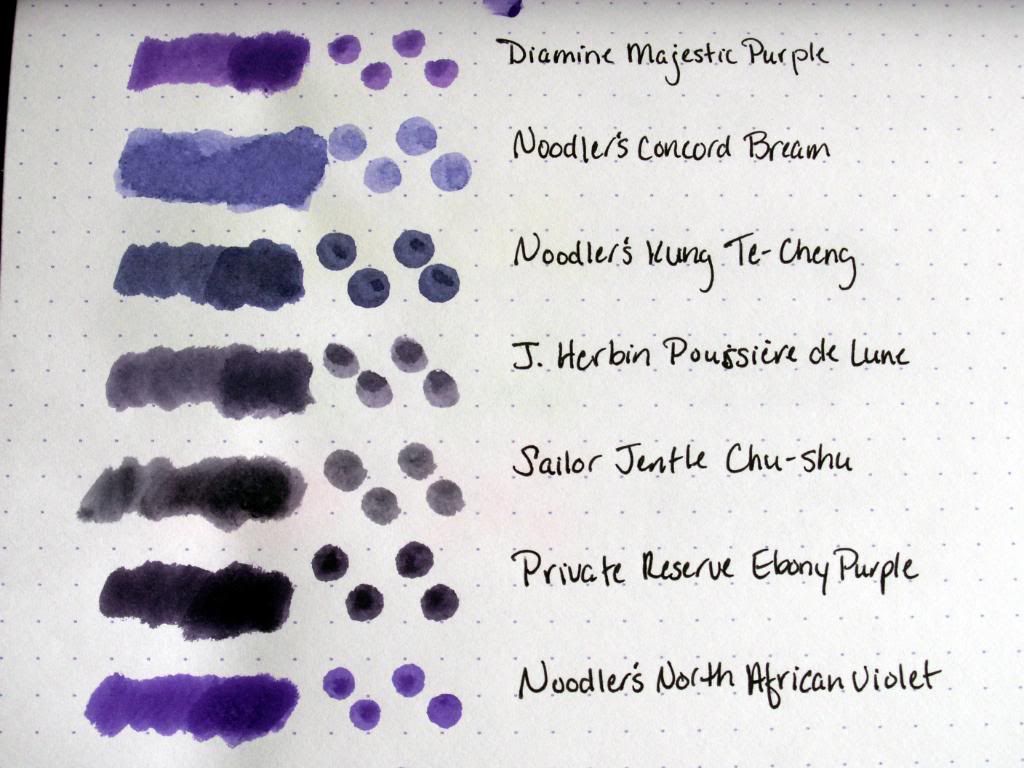 Diamine Majestic Purple
Noodler's Concord Bream
Noodler's Kung Te-Cheng
J. Herbin Poussière de Lune
Sailor Jentle Chu-shu
Private Reserve Ebony Purple
Noodler's North African Violet